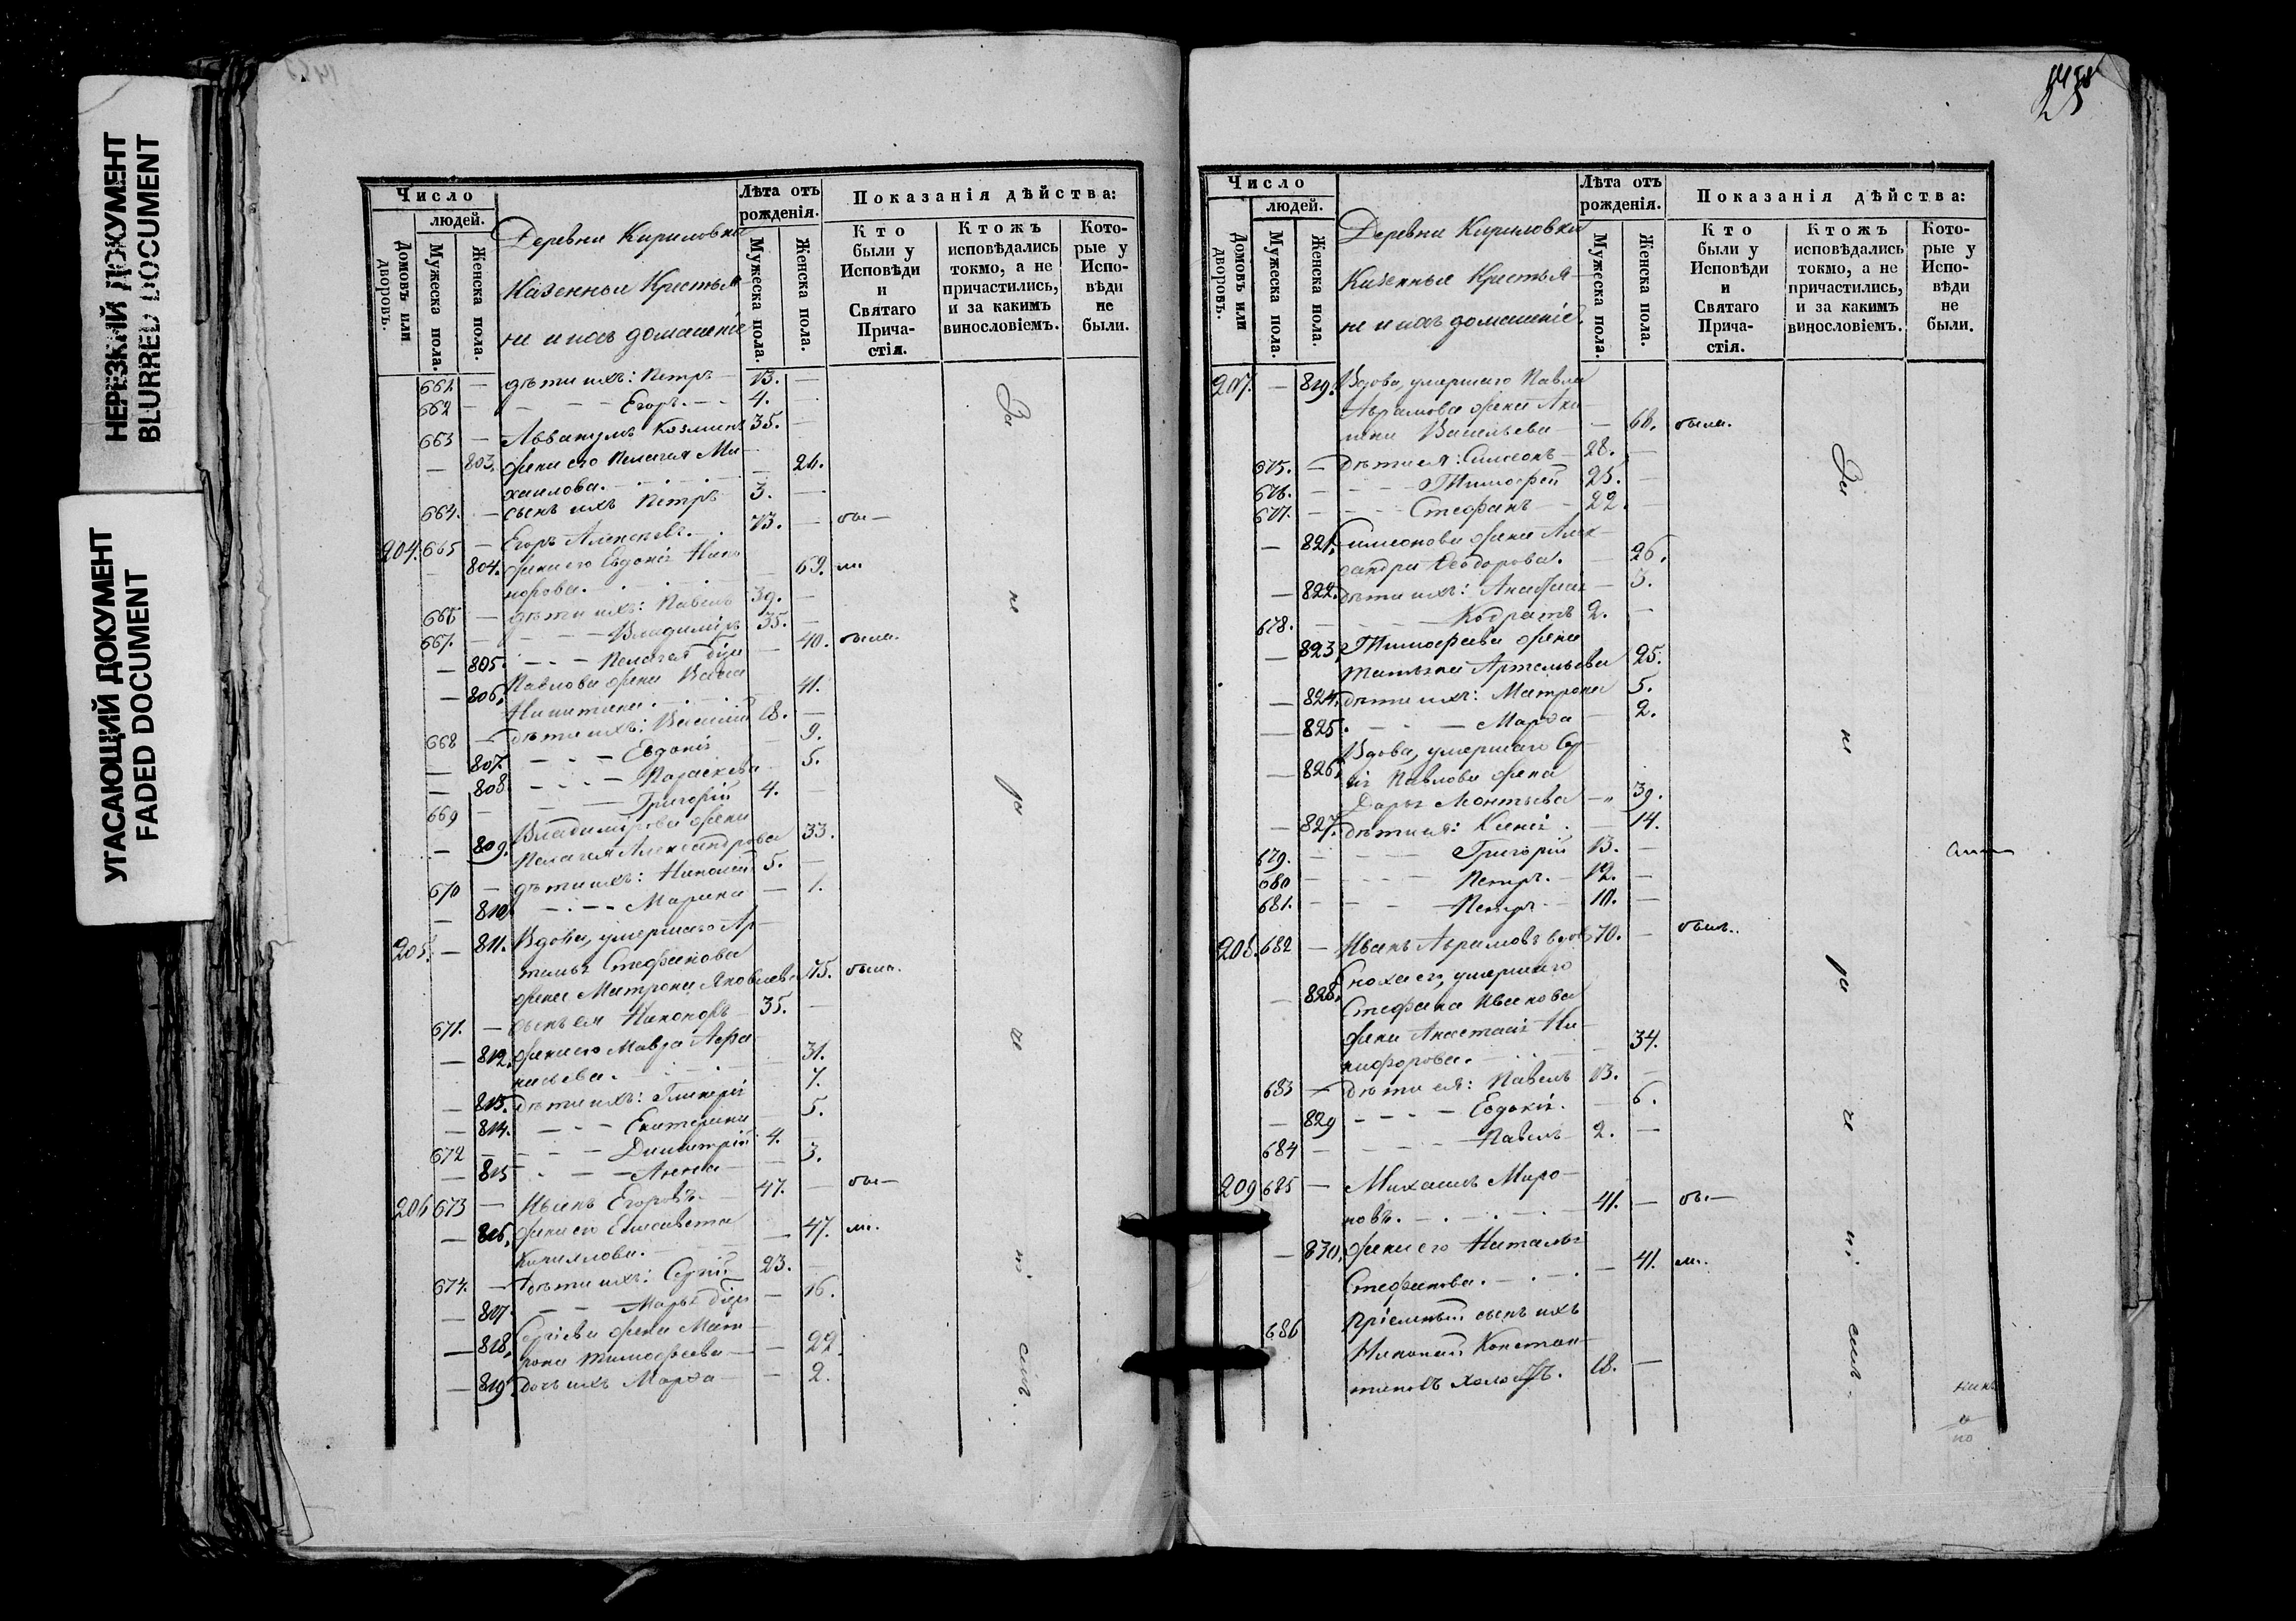 НЕРЕЗКИЙ ДОКУМЕНТ
BLURRED DOCUMENT
УГАСАЮЩИЙ ДОКУМЕНТ
FADED DOCUMENT
Число
людей.
Домовъ или дворовъ.
Мужеска пола.
Женска пола.
Деревни Кириловки
Казенныя Крестья-
не и ихъ домашніе
Лѣта отъ рожденія.
Мужеска пола.
Женска пола.
Показанія дѣйства:
Кто были у Исповѣди и Святаго Причастія.
Ктожъ исповѣдались токмо, а не причастились, и за какимъ винословіемъ.
Которые у Исповѣди не были.
661 — дѣти ихъ: Петръ 13. —
662 — Егоръ 4. —
663 — Аввакумъ Козминъ 35. —
— 803. жена его Пелагея Ми-
хаилова. — 26.
664. — сынъ ихъ Петръ 3. —
204. 665 — Егоръ Алексѣевъ. 73. — бы—
— 804. жена его Евдокія Ники-
форова. — 69. ли
666 — дѣти ихъ: Павелъ 39. —
667. — Владиміръ 35. —
— 805. Пелагея — 40. была.
— 806. Павлова жена Васса
Никитина. 41.
668 — дѣти ихъ: Василій 18. —
— 807. Евдокія 9.
— 808. Параскева 5.
669 — Григорій 4. —
— 809. Владимірова жена
Пелагея Александрова 33.
670 — дѣти ихъ: Николай 5. —
— 810. Марина — 1.
205. — 811. Вдова, умершаго Ар-
тамия Стефанова
жена Матрона Яковлева 75. была.
671. — сынъ ея Никоноръ 35. —
— 812. жена его Мавра Афа-
насьева. 31.
— 813. дѣти ихъ: Гликерія 7.
— 814. Екатерина 5.
672 — Димитрій 4.
— 815 Анна — 3.
206 673 — Иванъ Егоровъ. 47. — бы—
— 816. жена его Елисавета
Кириллова. — 47. ли.
674. — дѣти ихъ: Сергій 23. —
— 817. Марья — 16.
— 818. Сергіева жена Мат-
рона Тимофеева — 22.
— 819. дочь ихъ Марѳа — 2.
За
не
ра
че
ні
емъ.
Число
людей.
Домовъ или дворовъ.
Мужеска пола.
Женска пола.
Деревни Кириловки
Казенныя Крестья-
не и ихъ домашніе.
Лѣта отъ рожденія.
Мужеска пола.
Женска пола.
Показанія дѣйства:
Кто были у Исповѣди и Святаго Причастія.
Ктожъ исповѣдались токмо, а не причастились, и за какимъ винословіемъ.
Которые у Исповѣди не были.
207. — 819. Вдова, умершаго Павла
Аврамова жена
Васильева — 60. была.
675. — дѣти ея: Симеонъ 28. —
676. — Тимофей 25. —
677. — Стефанъ 22. —
— 821. Симеонова жена Алек-
сандра Ѳеодорова. — 26.
— 822. дѣти ихъ: — 3.
678. — Кодратъ 2. —
— 823. Тимофеева жена
Татьяна Артемьева 25.
— 824. дѣти ихъ: Матрона 5.
— 825. Марѳа — 2.
— 826. Вдова, умершаго Сер-
гія Павлова жена
Дарья Леонтьева — 39.
— 827. дѣти ея: Ксенія — 14.
679. — Григорій 13. —
680 — Петръ. 12. —
681. — Петръ 10. —
208. 682 — Иванъ Аврамовъ вдовъ 70. — былъ.
— 828. Сноха его, умершаго
Стефана Иванова
жена Анастасія Ни-
кифорова. 34.
683 — дѣти ея: Павелъ 13. —
— 829 Евдокія. — 6.
684 — Павелъ 2. —
209 685 — Михаилъ Миро-
новъ. 41. — бы—
— 830. жена его Наталья
Стефанова. — 41. ли.
686 Пріемный сынъ ихъ
Николай Констан-
тиновъ холостъ. 18. —
За
не
ра
че
ні
емъ.